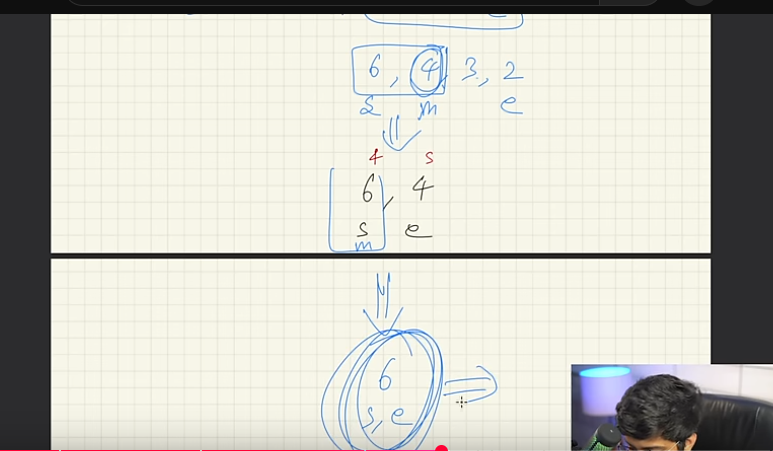 6, 4, 3, 2
s m e
4 5
6, 4
s e
m
6
s, e